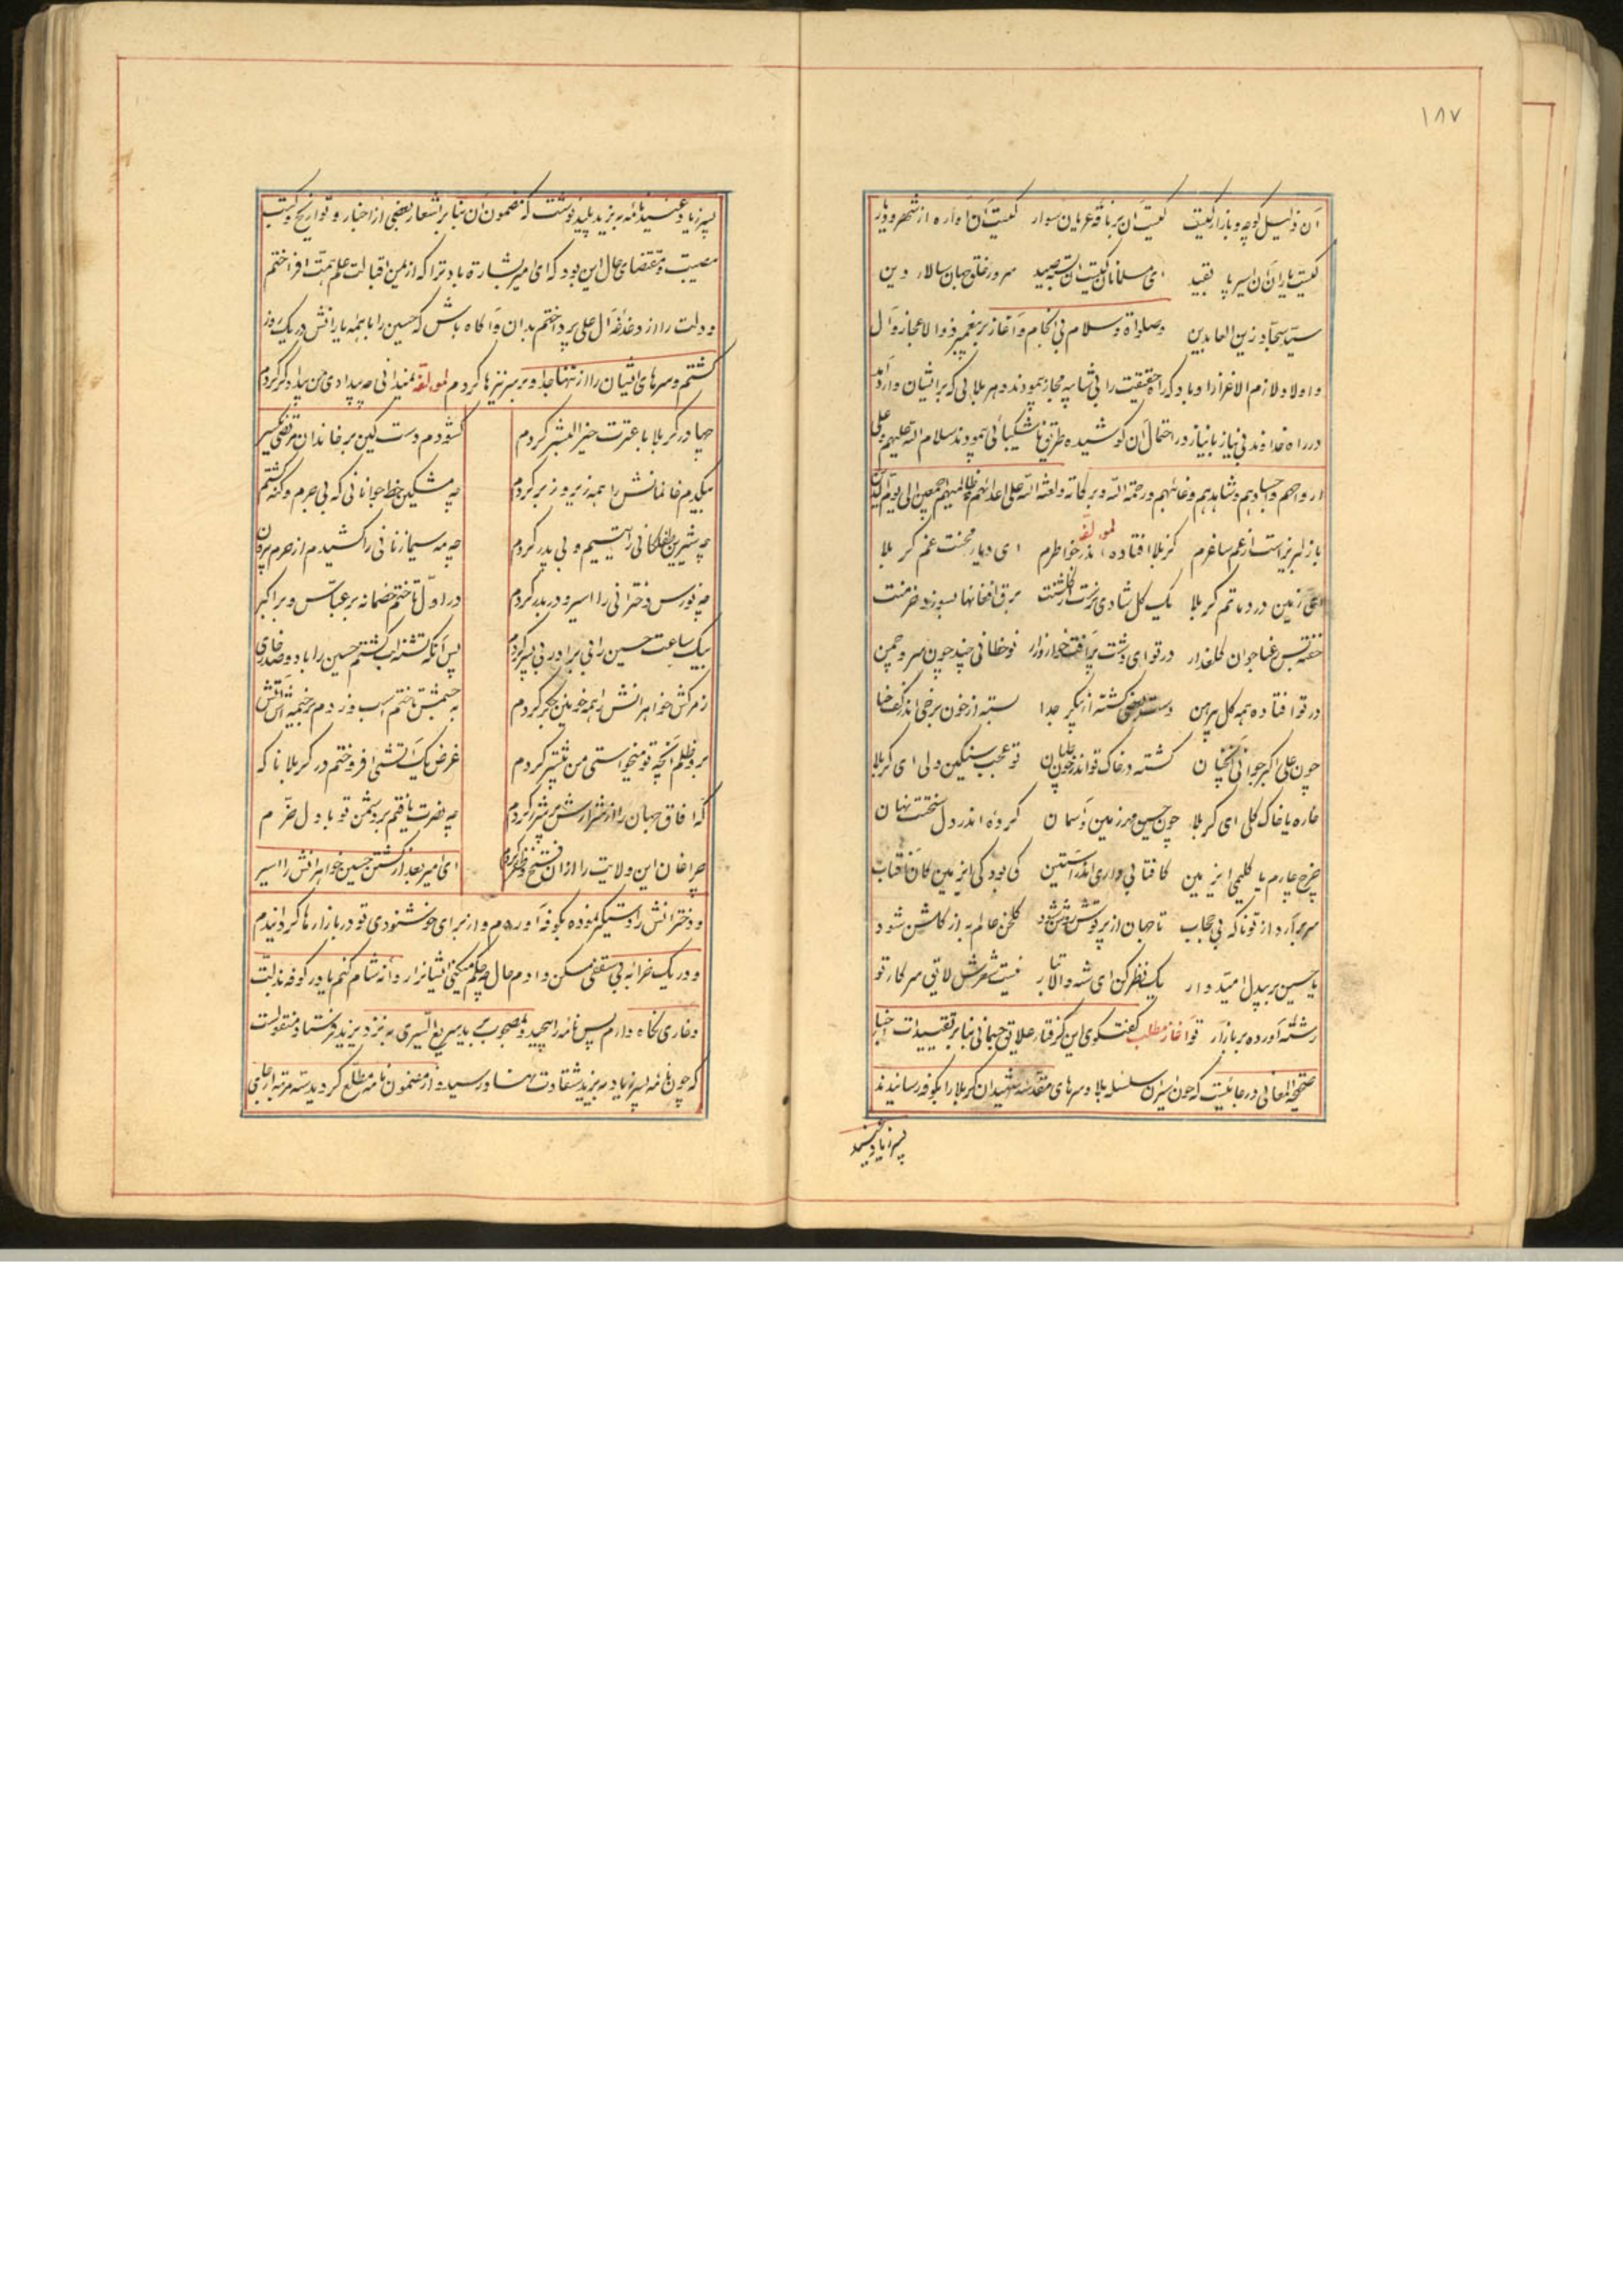 ۱۸۷
آن ذلیل کوچه و بازار کیست کیست آن بر ناقه عریان سوار کیست آن آواره از شهر و دیار
کیست یاران آن اسیر پا بقید ای مسلمانان کیست آن سرور خلق جهان سالار دین
سید سجاد زین العابدین و صلواة و سلام بی انجام و آغاز بر پیغمبر ذوالاعجاز و آل
و اولاد لازم الاعزاز او باد که راه حقیقت را بی شایبه مجاز پیمودند و هر بلائی که بر ایشان وارد آمد
در راه خداوند بی نیاز با نیاز در احتمال آن کوشیده طریق شکیبائی پیمودند سلام الله علیهم و علی
ارواحهم و اجسادهم و شاهدهم و غائبهم و رحمة الله و برکاته و لعنة الله علی اعدائهم و ظالمیهم اجمعین الی یوم الدین
لمولفه
باز لبریز است از غم ساغرم کربلا افتاده اندر خاطرم ای دیار محنت غم کربلا
ای زمین درد و ماتم کربلا یک گل شادی نرست از گلشنت برق افغانها بسوزد خرمنت
خفته بس رعنا جوان گلعذار در تو ای دشت پر آفت خوار و زار نوخطانی چند چون سرو چمن
در تو افتاده همه گل پیرهن دست بعضی گشته از پیکر جدا بسته از خون برخی اندر کف حنا
چون علی اکبر جوانی آنچنان گشته در خاک تو اندر خون تپان تو عجب سنگین دلی ای کربلا
خاره یا خاک گلی ای کربلا چون حسین مهر زمین و آسمان کرده اندر دل سختت نهان
چرخ چارم یا کلیمی ای زمین کافتابی داری اندر آستین کی بود کی ای زمین کان آفتاب
سر برآرد از تو ناگه بی حجاب تا جهان از پرتوش روشن شود گلخن عالم به از گلشن شود
یا حسین بر بیدل امیدوار یک نظر کن ای شه والاتبار نیست شعرش لایق سرکار تو
رشته آورده بر بازار تو آغاز مطلب گفتگوی این گرفتار علایق جهانی بنابر تقییدات اخبار
صحیح المعانی در جائیست که چون اسیران سلسله بلا و سرهای مقدسه شهیدان کربلا را بکوفه رسانیدند
پسر زیاد عنید
پسر زیاد عنید نامه به یزید پلید نوشت که مضمون آن بنابر اشعار بعضی از اخبار و تواریخ و کتب
مصیبت و مقتضای حال این بود که ای امیر بشارة باد ترا که از یمن اقبالت علم همت افراختم
و دولت را از دغدغه آل علی پرداختم بدان و آگاه باش که حسین را با همه یارانش در یک روز
کشتم و سرهای ایشان را از تنها جدا و بر سر نیزها کردم لمولفه نمیدانی چه بیدادی من بیدادگر کردم
جها در کربلا با عترت خیر البشر کردم گشودم دست کین بر خاندان مرتضی یکسر
بیکدم خانمانش را همه زیر و زبر کردم چه مشکین خط جوانانی که بی جرم و گنه کشتم
چه شیرین طفلکانی را یتیم و بی پدر کردم چه مه سیما زنانی را کشیدم از حرم بیرون
چه نورس دخترانی را اسیر و دربدر کردم در اول تاختم خصمانه بر عباس و بر اکبر
بیک ساعت حسین را بی برادر بی پسر کردم پس آنگه تشنه لب کشتم حسین را با دو صد خواری
ز مرگش خواهرانش را همه خونین جگر کردم به جسمش تاختم اسب و زدم بر خیمه اش آتش
برو ظلم آنچه تو میخواستی من بیشتر کردم غرض یک آتشی افروختم در کربلا ناگه
که آفاق جهان را از شرارش پر شرر کردم چه نصرت یافتم بر دشمن تو با دل خرم
چراغان این ولایت را از آن فتح و ظفر کردم ای امیر بعد از کشتن حسین خواهرانش را اسیر
و دخترانش را دستگیر نموده بکوفه آوردم و از برای خوشنودی تو در بازارها گردانیدم
و در یک خرابه بی سقفی مسکن دادم حال چه حکم میکنی ایشانرا روانه شام کنم یا در کوفه بذلت
و خواری نگاه دارم پس نامه را پیچید و بمصحوب بدسریع السیری به نزد یزید فرستاد منقولست
که چون نامه پسر زیاد به یزید شقاوت بنیاد رسید و از مضمون نامه مطلع گردید سه مرتبه از جای